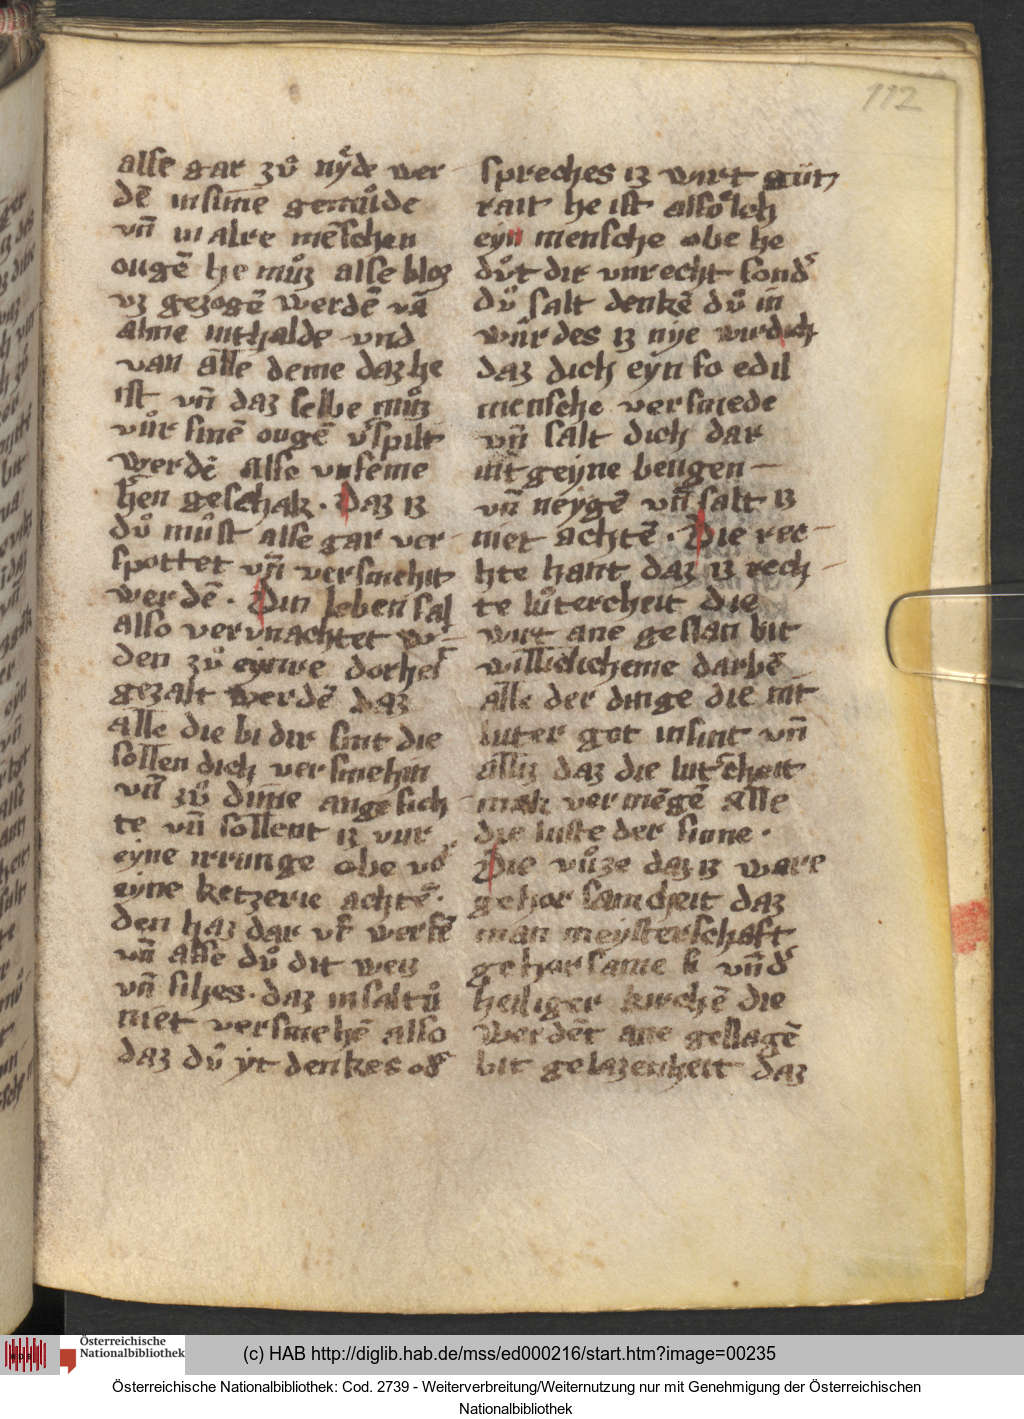 112
alse gar zů nẏͤde wer
dē in sime gemůlde
vn̄ in alre mēschen
ougē he můz alse bloz
vz gezogē werdē vā
alme inthalde vnd
van alle deme daz he
ist vn̄ daz selbe můz
vůr sinē ougē v͛spilt
werdē alse vnseme
h̄en geschak. Daz iz
dů můst alse gar ver
spottet vn̄ versmehit
werdē. Din leben sal
also vervnachtet w͛
den zů eynre dorhei͛
gezalt werdē daz
alle die bi dir sint die
sollen dich versmehin
vn̄ zů dinne angesich
te vn̄ sollent iz vur
eyne irrunge obe vō͛
eyne ketzerie achtē.
den haz dar vf͛ werfē
vn̄ alse dů dit weiz
vn̄ sihes. daz insaltů
niet versmehē also
daz dů yt denkes od͛
spreches iz wirt gůt
rait he ist alsolͦich
eyn mensche obe he
důt dir vnrecht sond͛
dů salt denkē dů in
wůrdes iz nye wirdich
daz dich eyn so edil
mensche versmede
vn̄ salt dich dar
nit geyne beugen
vn̄ neygē vn̄ salt iz
niet achtē. Die rec
hte hant daz iz rech
te lůtercheit die
wirt ane geslan bit
willicliche̅me darbē
alle der dinge die nit
luter got insint vn̄
alsus daz die lut͛cheit
mak vermēgē alle
die luste der sinne.
Die vůze daz iz ware
gehorsamcheit daz
man meysterschaft
gehorsame si vn̄d͛
heiliger kirchē die
werdēt ane geslagē
bit gelazenheit daz
Österreichische
Nationalbibliothek
(c) HAB http://diglib.hab.de/mss/ed000216/start.htm?image=00235
Österreichische Nationalbibliothek: Cod. 2739 - Weiterverbreitung/Weiternutzung nur mit Genehmigung der Österreichischen
Nationalbibliothek